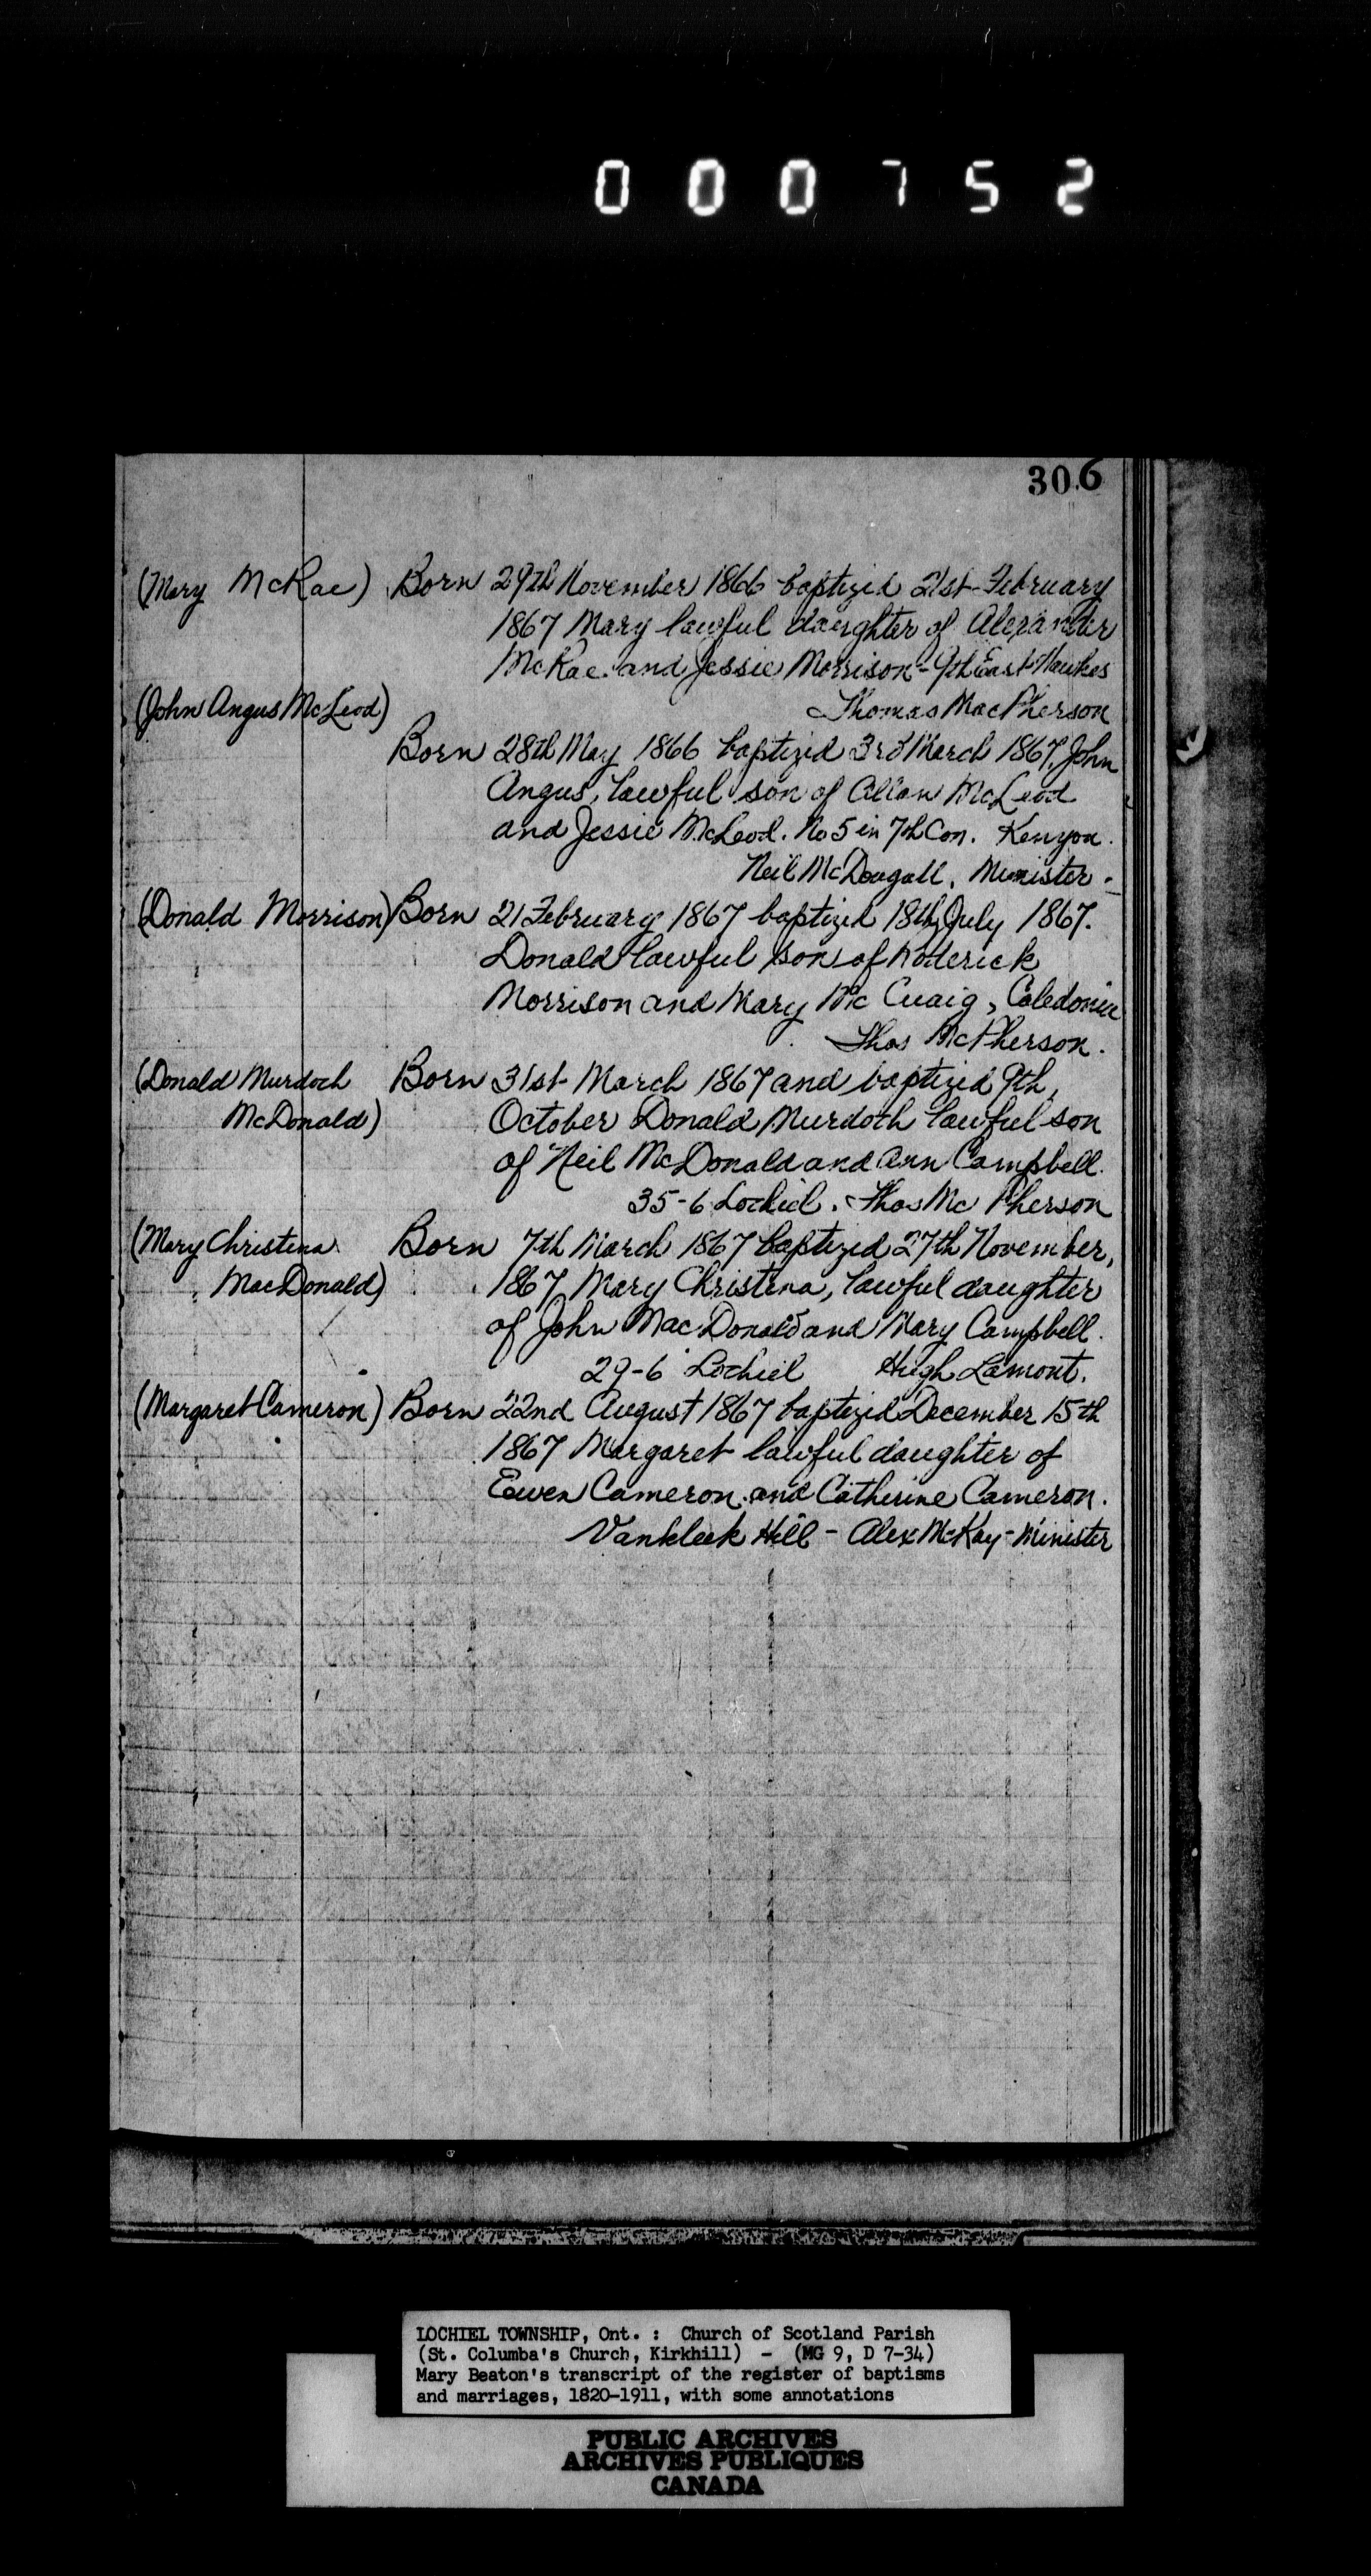 000752
306
(Mary McRae) Born 29th November 1866 baptized 21st February
1867 Mary lawful daughter of Alexander
McRae and Jessie Morrison - 9th East Hawkes
(John Angus McLeod) Thomas MacPherson
Born 28th May 1866 baptized 3rd March 1867, John
Angus, lawful son of Allan McLeod
and Jessie McLeod. No 5 in 7th Con. Kenyon.
Neil McDougall, Minister -
(Donald Morrison) Born 21 February 1867 baptized 18th July 1867.
Donald lawful son of Roderick
Morrison and Mary Mc Cuaig, Caledonia
Thos McPherson.
(Donald Murdoch Born 31st March 1867 and baptized 9th,
McDonald) October Donald Murdoth lawful son
of Neil McDonald and Ann Campbell.
35-6 Lochiel. Thos Mc Pherson
(Mary Christena Born 7th March 1867 baptized 27th November,
MacDonald) 1867 Mary Christena, lawful daughter
of John MacDonald and Mary Campbell.
29-6 Lochiel Hugh Lamont.
(Margaret Cameron) Born 22nd August 1867 baptized December 15th
1867 Margaret lawful daughter of
Ewen Cameron and Catherine Cameron.
Vankleek Hill - Alex McKay - Minister
LOCHIEL TOWNSHIP, Ont. : Church of Scotland Parish
(St. Columba's Church, Kirkhill) - (MG 9, D 7-34)
Mary Beaton's transcript of the register of baptisms
and marriages, 1820-1911, with some annotations
PUBLIC ARCHIVES
ARCHIVES PUBLIQUES
CANADA